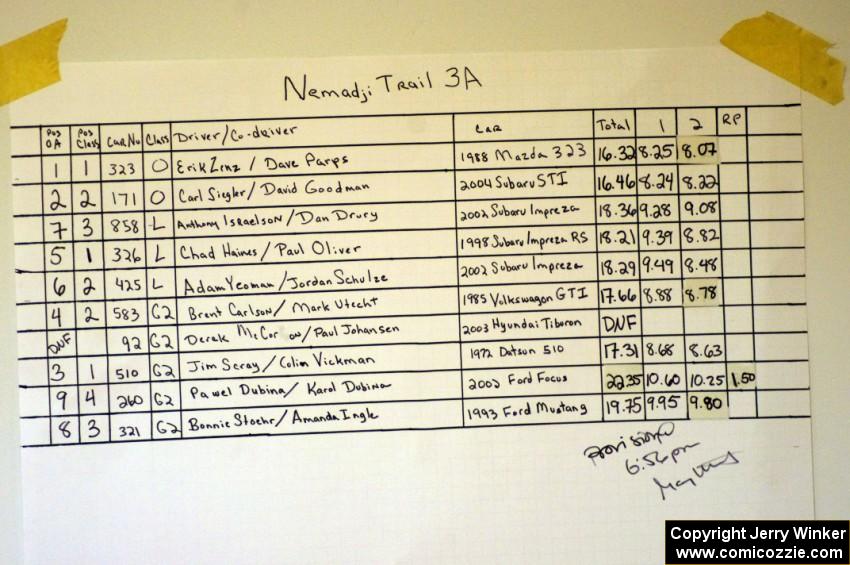 Nemadji Trail 3A
Pos OA Pos Class Car No Class Driver/Co-driver Car Total 1 2 RP
1 1 323 O Erik Zenz / Dave Parps 1988 Mazda 323 16.32 8.25 8.07
2 2 171 O Carl Siegler/ David Goodman 2004 Subaru STI 16.46 8.24 8.22
7 3 858 L Anthony Israelson/Dan Drury 2002 Subaru Impreza 18.36 9.28 9.08
5 1 326 L Chad Haines/ Paul Oliver 1998 Subaru Impreza RS 18.21 9.39 8.82
6 2 425 L Adam Yeoman /Jordan Schulze 2002 Subaru Impreza 18.29 9.49 8.48
4 2 583 G2 Brent Carlson/ Mark Utecht 1985 Volkswagon GTI 17.66 8.88 8.78
DNF 92 G2 Derek McCor on/Paul Johansen 2003 Hyundai Tiburon DNF
3 1 510 G2 Jim Scray/Colin Vickman 1972 Datsun 510 17.31 8.68 8.63
9 4 260 G2 Pawel Dubina/ Karol Dubina 2002 Ford Focus 22.35 10.60 10.25 1.50
8 3 321 G2 Bonnie Stoehr/ Amanda Ingle 1993 Ford Mustang 19.75 9.95 9.80
provisional
6:56pm
Copyright Jerry Winker
www.comicozzie.com